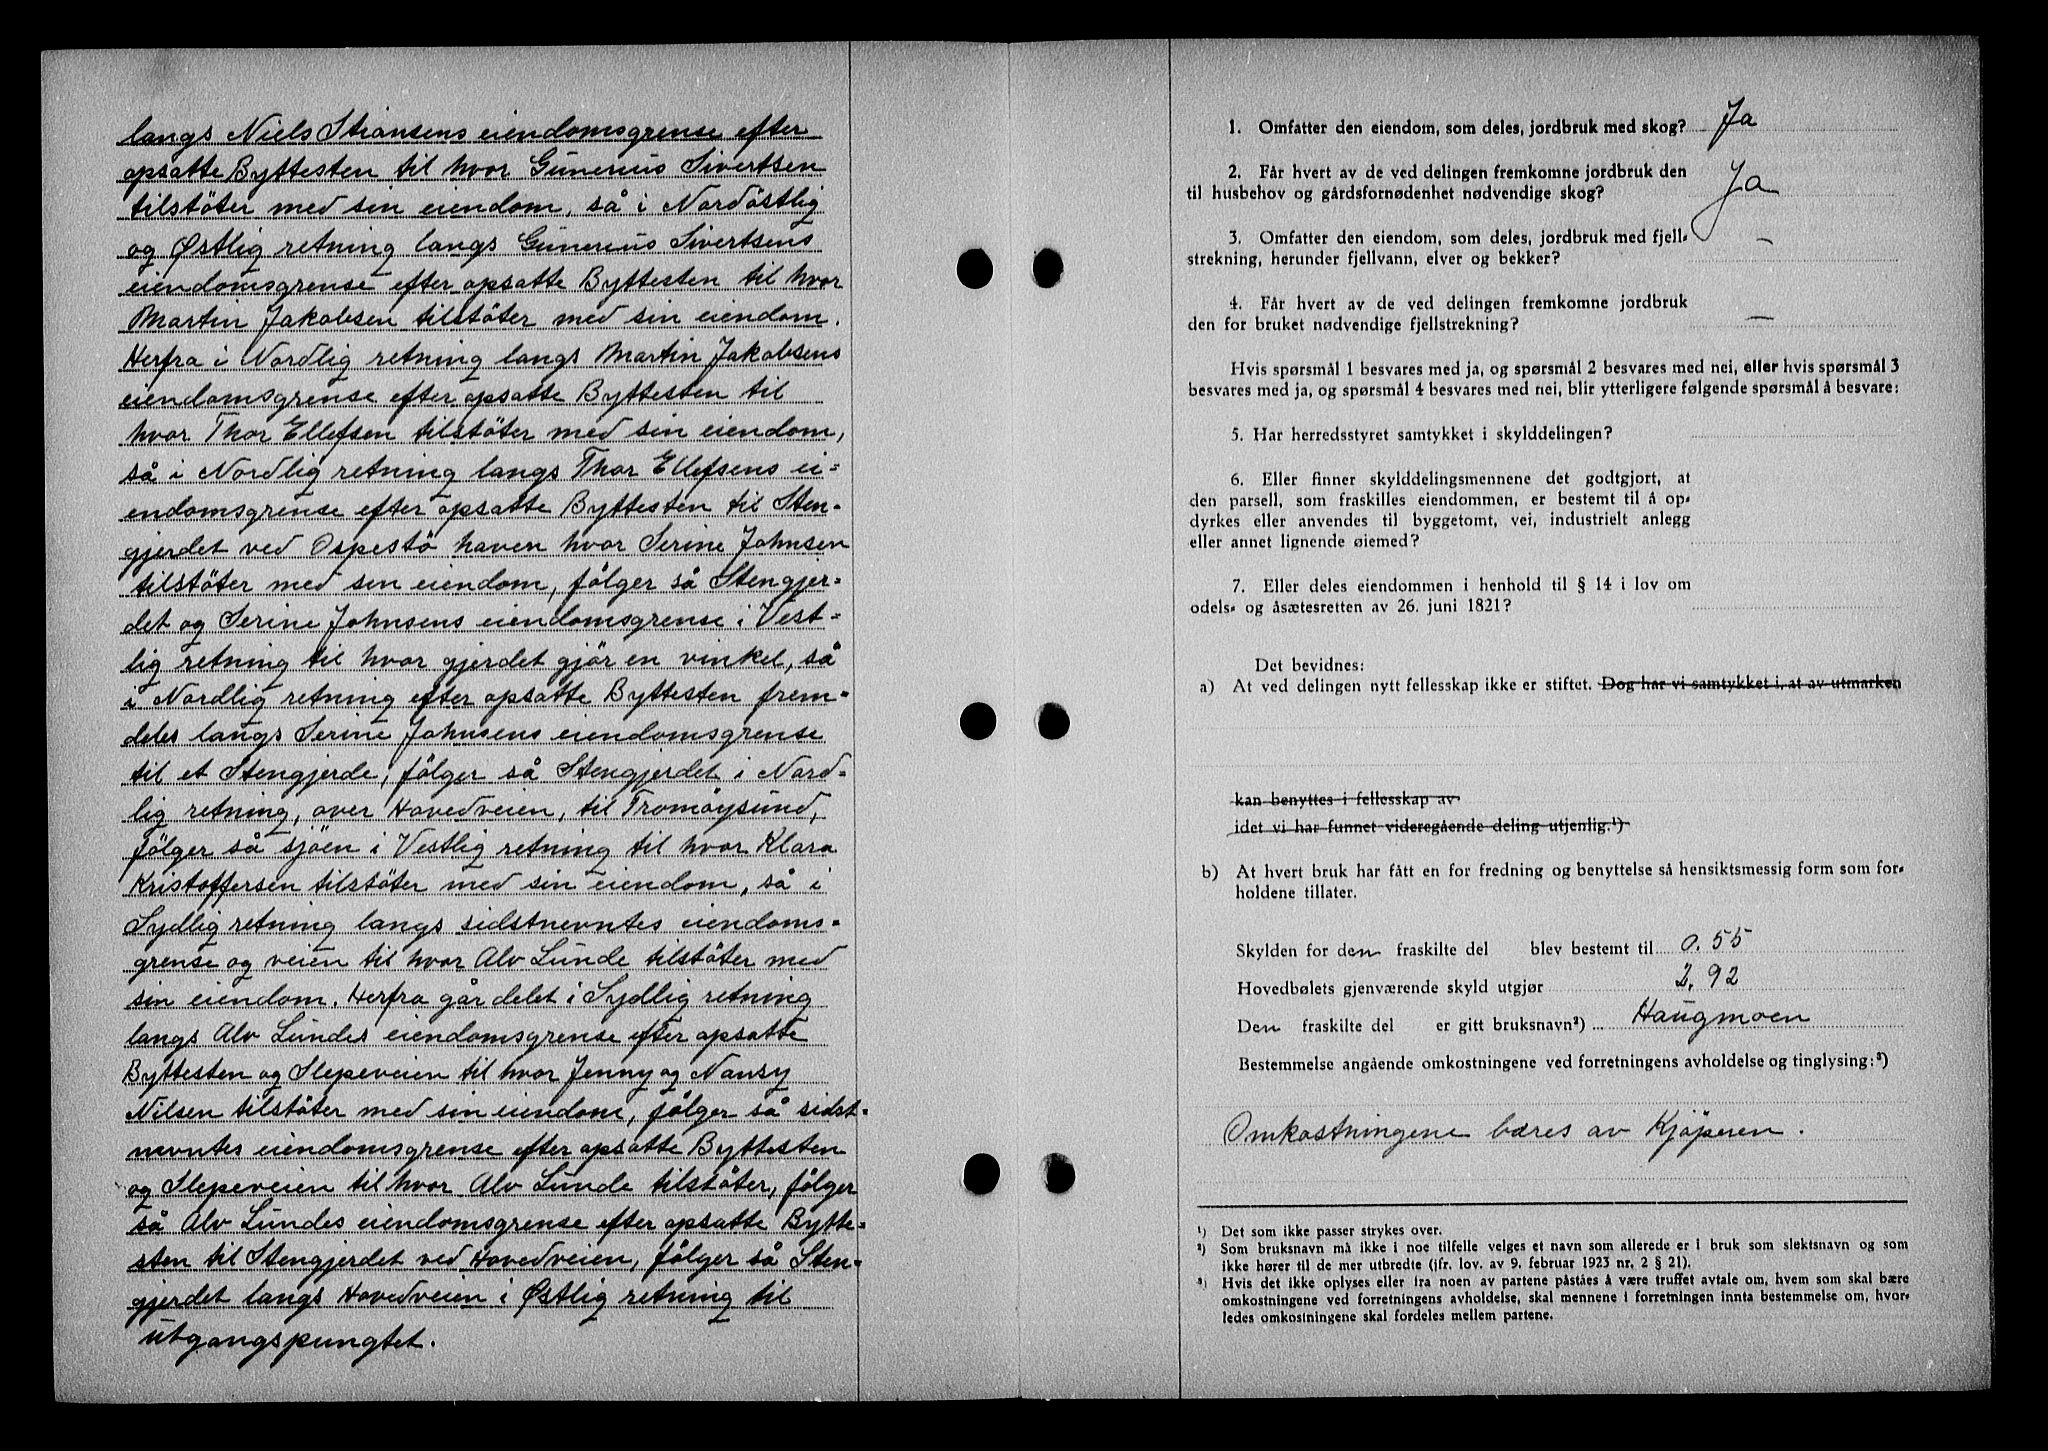 langs Niels Stiansens eiendomsgrense efter
opsatte Byttesten til hvor Gunerius Sivertsen
tilstöter med sin eiendom, så i Nordöstlig
og Østlig retning langs Gunerius Sivertsens
eiendomsgrense efter opsatte Byttesten til hvor
Martin Jakobsen tilstöter med sin eiendom.
Herfra i Nordlig retning langs Martin Jakobsens
eiendomsgrense efter opsatte Byttesten til
hvor Thor Ellefsen tilstöter med sin eiendom,
så i Nordlig retning langs Thor Ellefsens ei=
endomsgrense efter opsatte Byttesten til Sten=
gjerdet ved Ospestö haven hvor Serine Johnsen
tilstöter med sin eiendom, fölger så Stengjer=
det og Serine Johnsens eiendomsgrense i Vest=
lig retning til hvor gjerdet gjör en vinkel, så
i Nordlig retning efter opsatte Byttesten frem=
deles langs Serine Johnsens eiendomsgrense
til et Stengjerde, fölger så Stengjerdet i Nord=
lig retning, over Hovedveien, til Tromöysund,
fölger så sjöen i Vestlig retning til hvor Klara
Kristoffersen tilstöter med sin eiendom, så i
Sydlig retning langs sidstnevntes eiendoms=
grense og veien til hvor Alv Lunde tilstöter med
sin eiendom. Herfra går delet i Sydlig retning
langs Alv Lundes eiendomsgrense efter opsatte
Byttesten og Slepeveien til hvor Jenny og Nansy
Nilsen tilstöter med sin eiendom, fölger så sidst=
nevntes eiendomsgrense efter opsatte Byttesten
og Slepeveien til hvor Alv Lunde tilstöter, fölger
så Alv Lundes eiendomsgrense efter opsatte Bytte=
sten til Stengjerdet ved Hovedveien, fölger så Sten=
gjerdet langs Hovedveien i Østlig retning til
utgangspungtet.
1. Omfatter den eiendom, som deles, jordbruk med skog? Ja
2. Får hvert av de ved delingen fremkomne jordbruk den
til husbehov og gårdsfornødenhet nødvendige skog? Ja
3. Omfatter den eiendom, som deles, jordbruk med fjell-
strekning, herunder fjellvann, elver og bekker? —
4. Får hvert av de ved delingen fremkomne jordbruk
den for bruket nødvendige fjellstrekning? —
Hvis spørsmål 1 besvares med ja, og spørsmål 2 besvares med nei, eller hvis spørsmål 3
besvares med ja, og spørsmål 4 besvares med nei, blir ytterligere følgende spørsmål å besvare:
5. Har herredsstyret samtykket i skylddelingen?
6. Eller finner skylddelingsmennene det godtgjort, at
den parsell, som fraskilles eiendommen, er bestemt til å op-
dyrkes eller anvendes til byggetomt, vei, industrielt anlegg
eller annet lignende øiemed?
7. Eller deles eiendommen i henhold til § 14 i lov om
odels- og åsætesretten av 26. juni 1821?
Det bevidnes:
a) At ved delingen nytt fellesskap ikke er stiftet. Dog har vi samtykket i, at av utmarken
kan benyttes i fellesskap av
idet vi har funnet videregående deling utjenlig.¹)
b) At hvert bruk har fått en for fredning og benyttelse så hensiktsmessig form som for-
holdene tillater.
Skylden for den fraskilte del blev bestemt til 0.55
Hovedbølets gjenværende skyld utgjør 2.92
Den fraskilte del er gitt bruksnavn²) Haugmoen
Bestemmelse angående omkostningene ved forretningens avholdelse og tinglysing:³)
Omkostningene bæres av Kjöperen.
¹) Det som ikke passer strykes over.
²) Som bruksnavn må ikke i noe tilfelle velges et navn som allerede er i bruk som slektsnavn og som
ikke hører til de mer utbredte (jfr. lov. av 9. februar 1923 nr. 2 § 21).
³) Hvis det ikke oplyses eller fra noen av partene påståes å være truffet avtale om, hvem som skal bære
omkostningene ved forretningens avholdelse, skal mennene i forretningen innta bestemmelse om, hvor-
ledes omkostningene skal fordeles mellem partene.